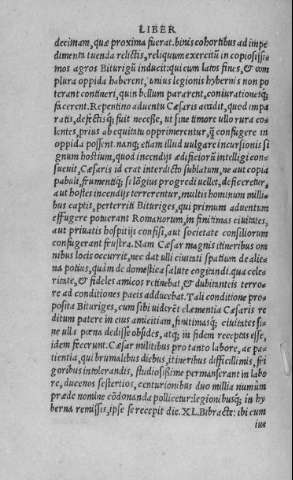 LIBER
decimam, quæ proxima fuerat. binis cohortibus ad impe
dimenta tuenda relictis, reliquum exercitū in copiosissi
mos agros Biturigū inducit: qui cum latos fines, & com
plura oppida haberent, unius legionis hybernis non po
terant contineri, quin bellum pararent, coniurationesq́;
facerent. Repentino aduentu Cæsaris accidit, quod impa
ratis, defectisq́; fuit necesse, ut sine timore ullo rura co
lentes, prius ab equitatu opprimerentur, q̄ confugere in
oppida possent. nanq; etiam illud uulgare incursionis si
gnum hostium, quod incendijs ædificiorū intelligi con⸗
sueuit, Cæsaris id erat interdicto sublatum, ne aut copia
pabuli, frumentiq́; si lōgius progredi uellet, deficeretur,
aut hostes incendijs terrerentur, multis hominum milli⸗
bus captis, perterriti Bituriges, qui primum aduentum
effugere potuerant Romanorum, in finitimas ciuitates,
aut priuatis hospitijs confisi, aut societate consiliorum
confugerant frustra. Nam Cæsar magnis itineribus om
nibus locis occurrit, nec dat ulli ciuitati spatium de alie⸗
na potius, quàm de domestica salute cogitandi. qua cele⸗
ritate, & fideles amicos retinebat, & dubitanteis terro⸗
re ad conditiones pacis adducebat. Tali conditione pro⸗
posita Bituriges, cum sibi uiderēt clæmentia Cæsaris re
ditum patere in eius amicitiam, finitimasq́; ciuitates si⸗
ne ulla pœna dedisse obsides, atq; in fidem receptas esse,
idem fecerunt. Cæsar militibus pro tanto labore, ac pa⸗
tientia, qui brumalibus diebus, itineribus difficillimis, fri
goribus intolerandis, studiosissime permanserant in labo
re, ducenos sestertios, centurionibus duo millia numūm
prædæ nomine cōdonanda pollicetur: legionibusq́; in hy
berna remissis, ipse se recepit die. XL. Bibracte: ibi cum
ius